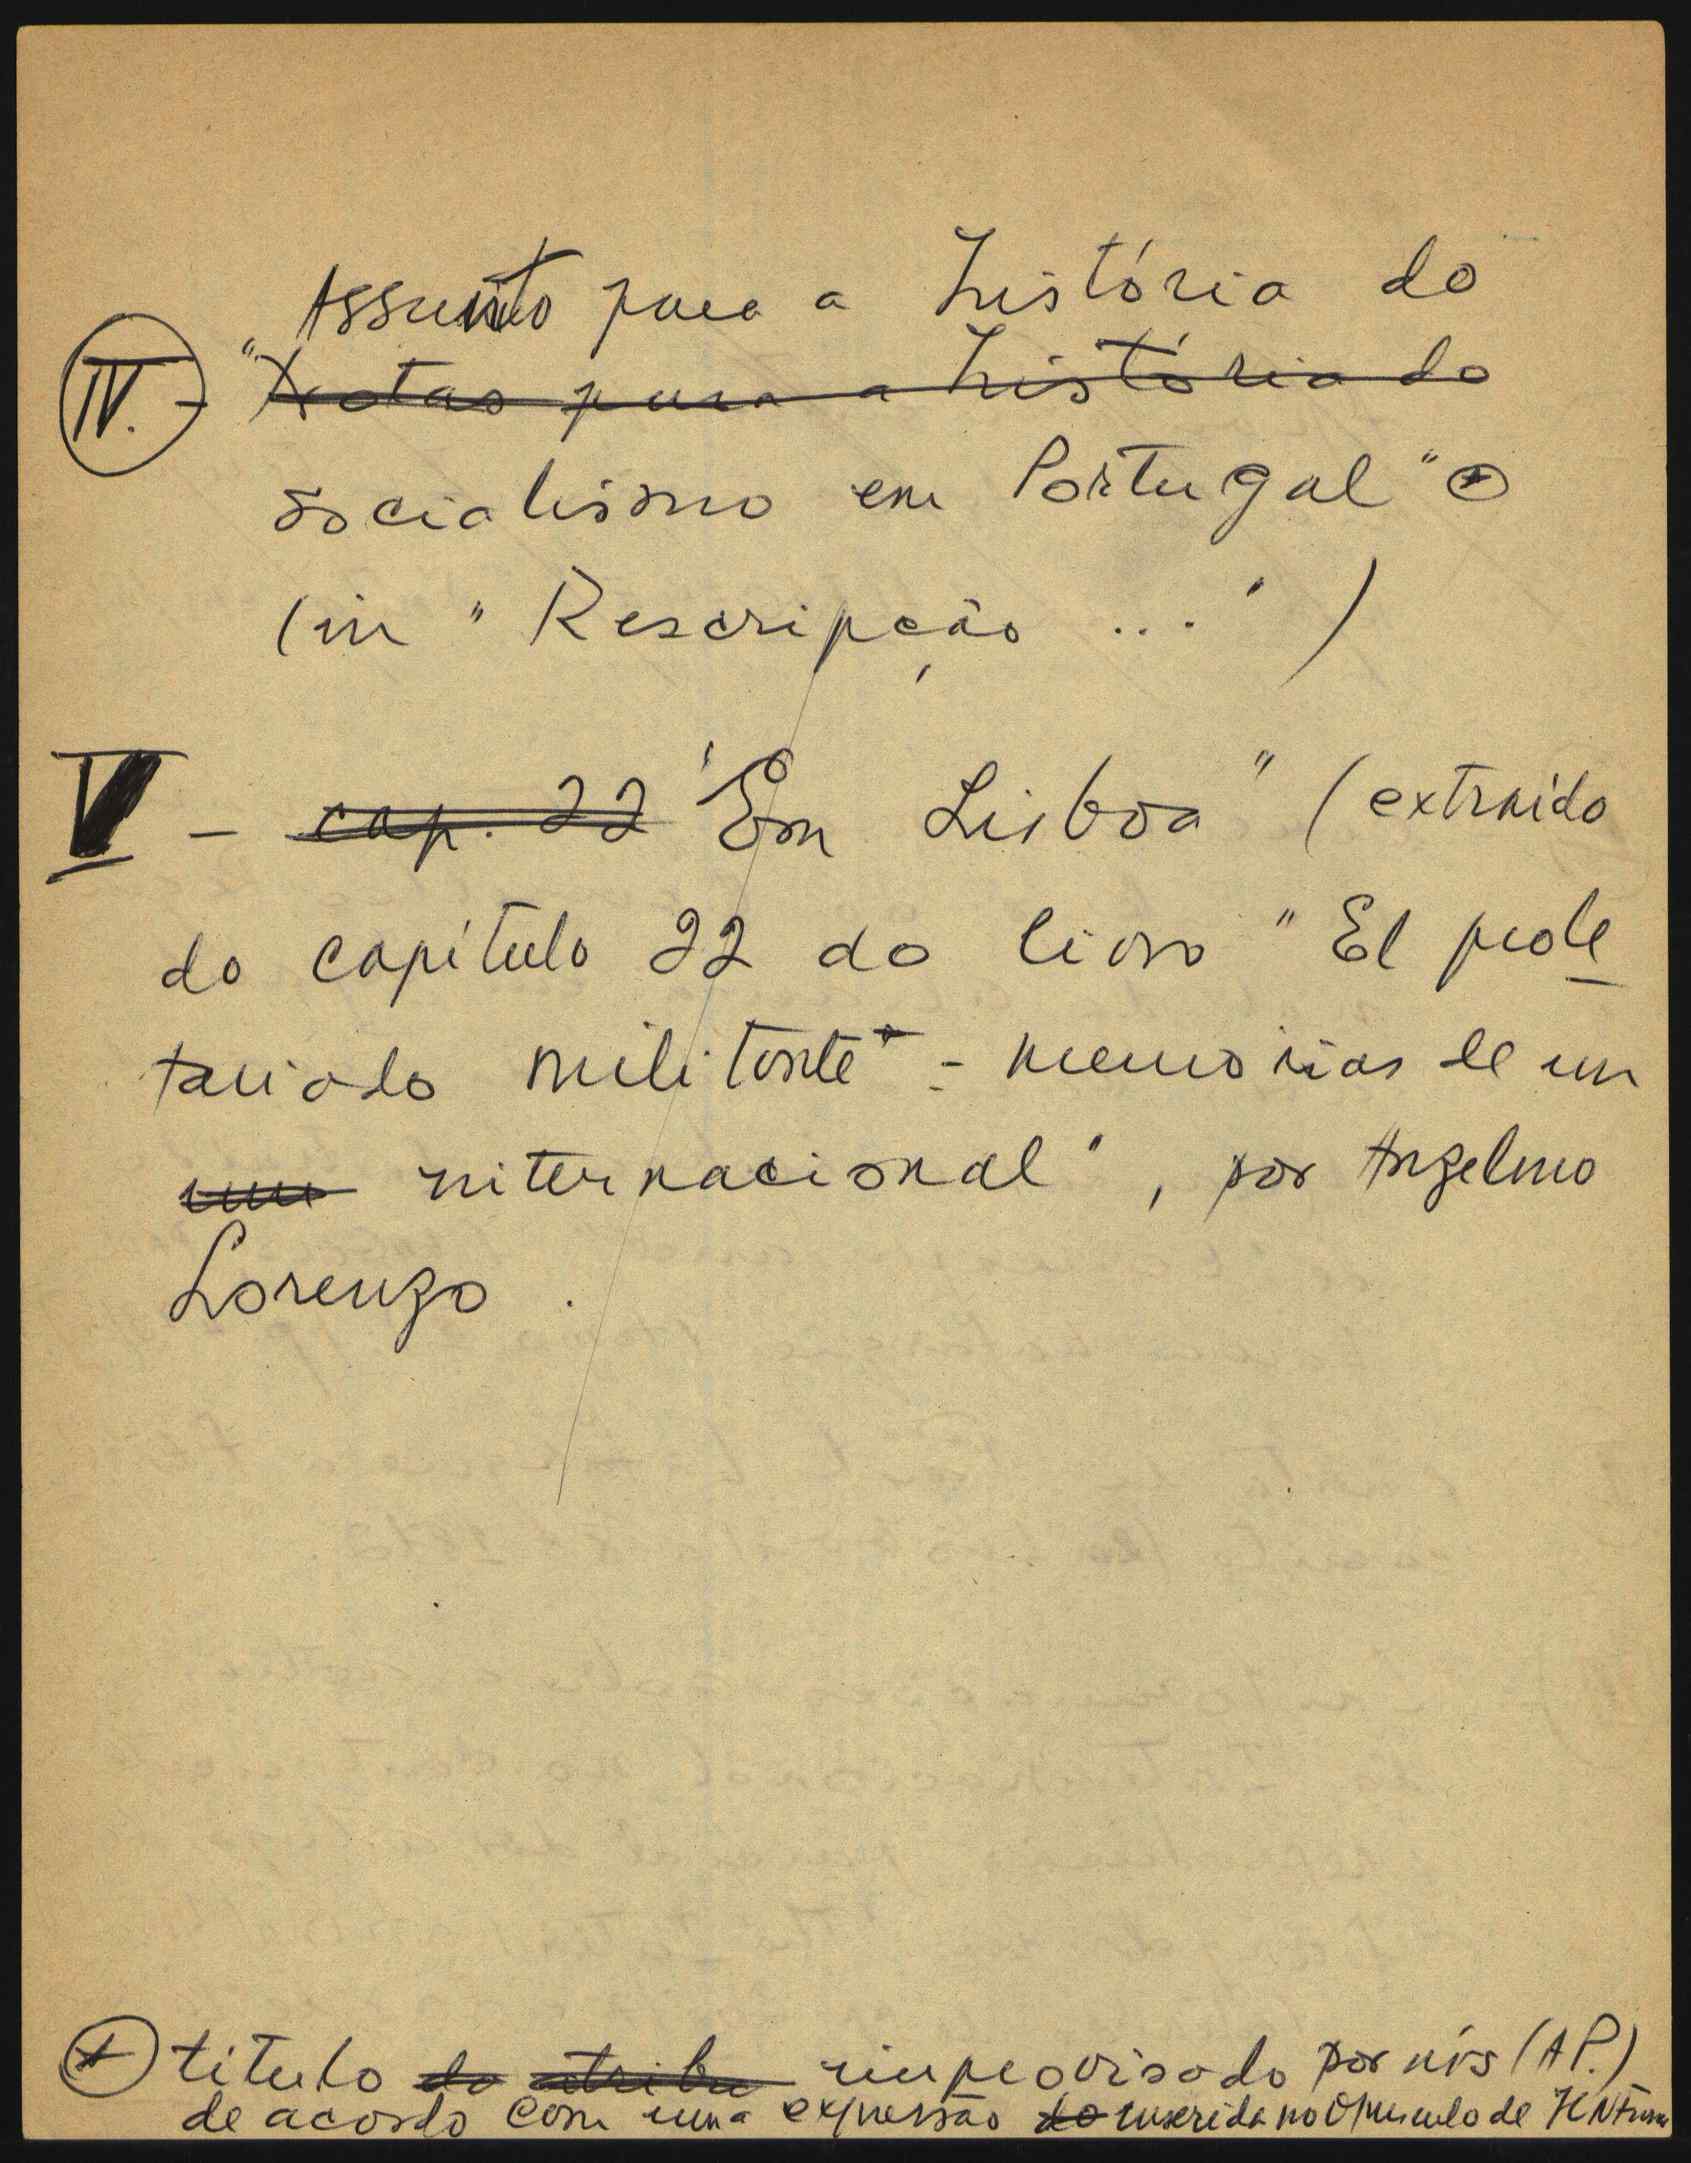 Assunto para a história do
IV. - "~~Notas para a história do~~
socialismo em Portugal" (*)
(in "Rescripção ...")
V - ~~cap. 22~~ "Em Lisboa" (extraído
do capítulo 22 do livro "El prole
tariado militante - memorias de un
~~um~~ internacional", por Anselmo
Lorenzo.
(*) título ~~do~~ ~~atribu~~ improvisado por nós (A P.)
de acordo com uma expressão ~~do~~ inserida no Opusculo de